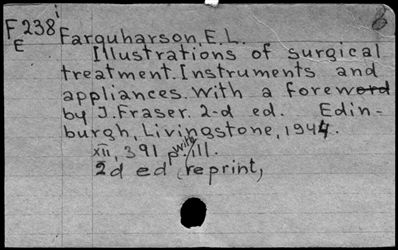 F 238 i
E
Farquharson, E.L.
Illustrations of surgical
treatment. Instruments and
appliances. With a foreword
by J. Fraser. 2-d ed. Edin-
burgh, Livingstone, 1944.
xii, 391 p. with ill.
2d ed (reprint,